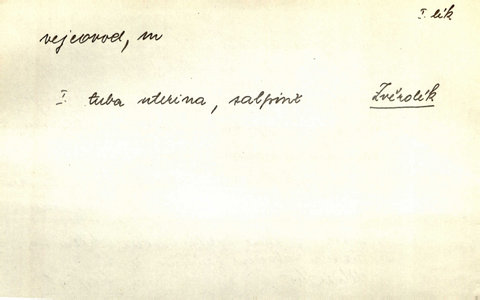 I. lík
vejcovod, m
I. tuba uterina, salpinx Zvěrolík